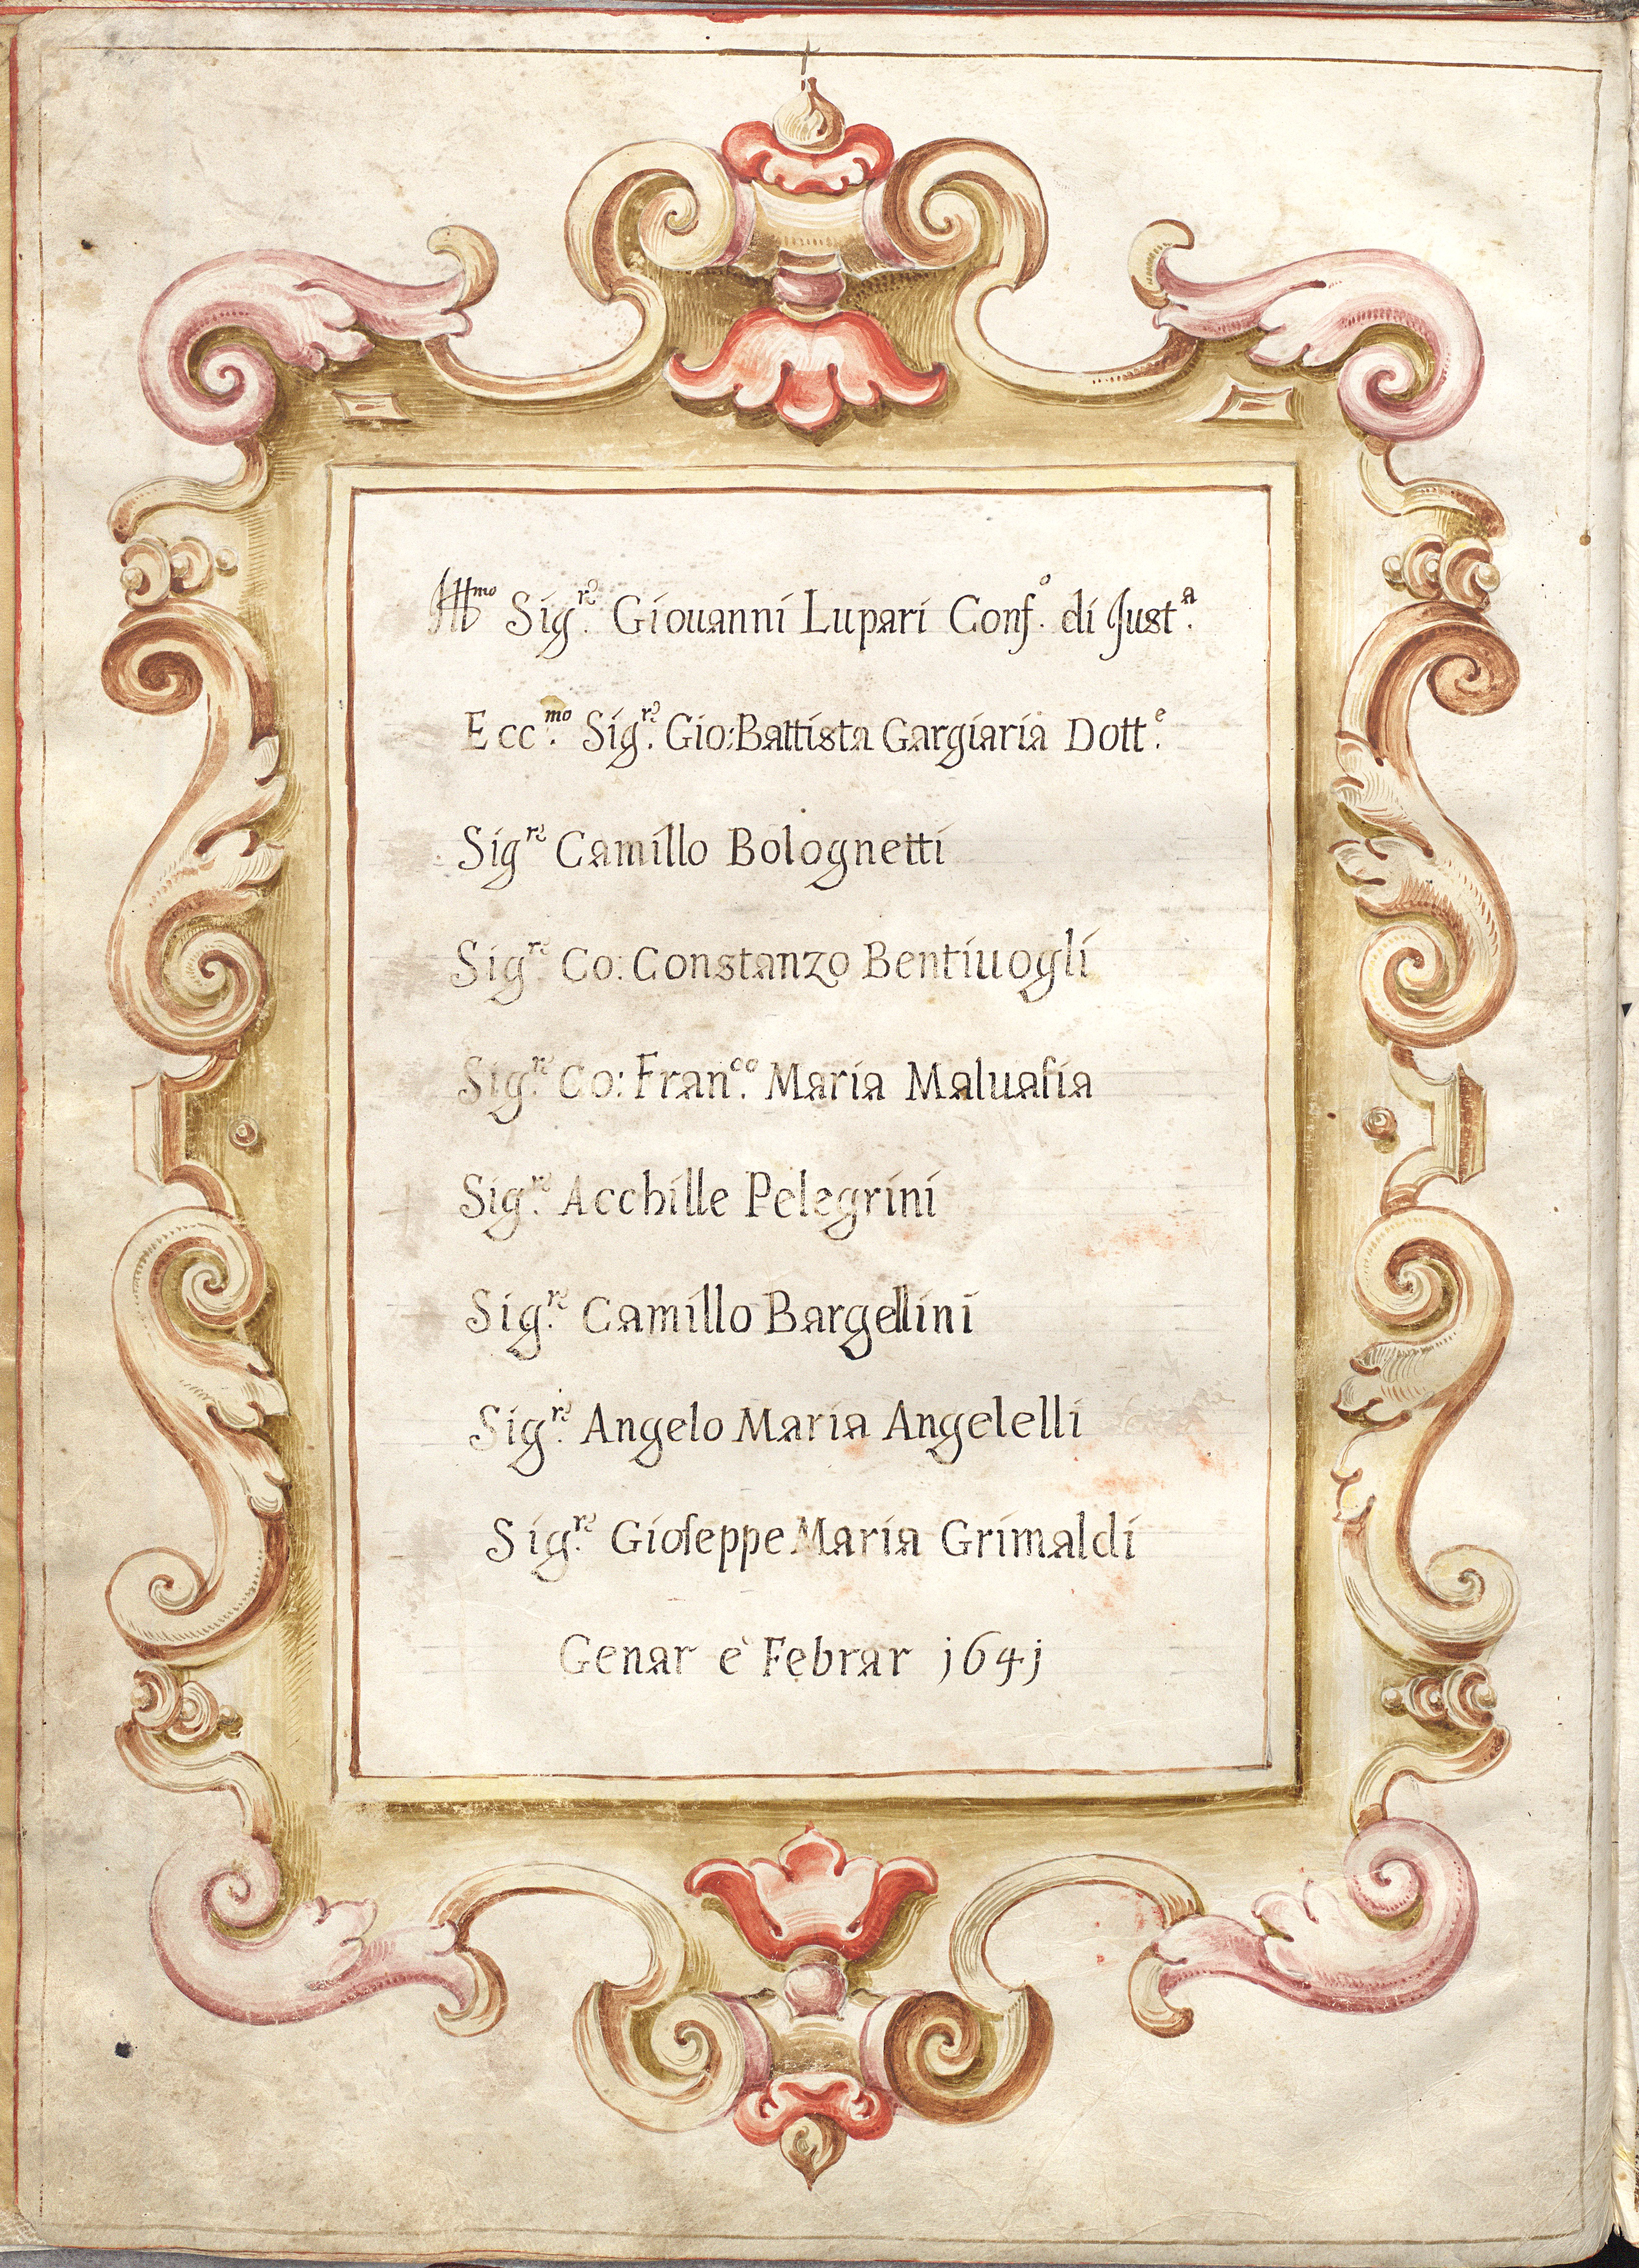 Ill.mo Sig.re Giouanni Lupari Conf.o di Just.a
Ecc.mo Sig.re Gio: Battista Gargiaria Dott.e
Sig.re Camillo Bolognetti
Sig.re Co: Constanzo Bentiuogli
Sig.re Co: Fran.co Maria Maluaſia
Sig.re Acchille Pelegrini
Sig.re Camillo Bargellini
Sig.re Angelo Maria Angelelli
Sig.re Gioſeppe Maria Grimaldi
Genar e Febrar 1641